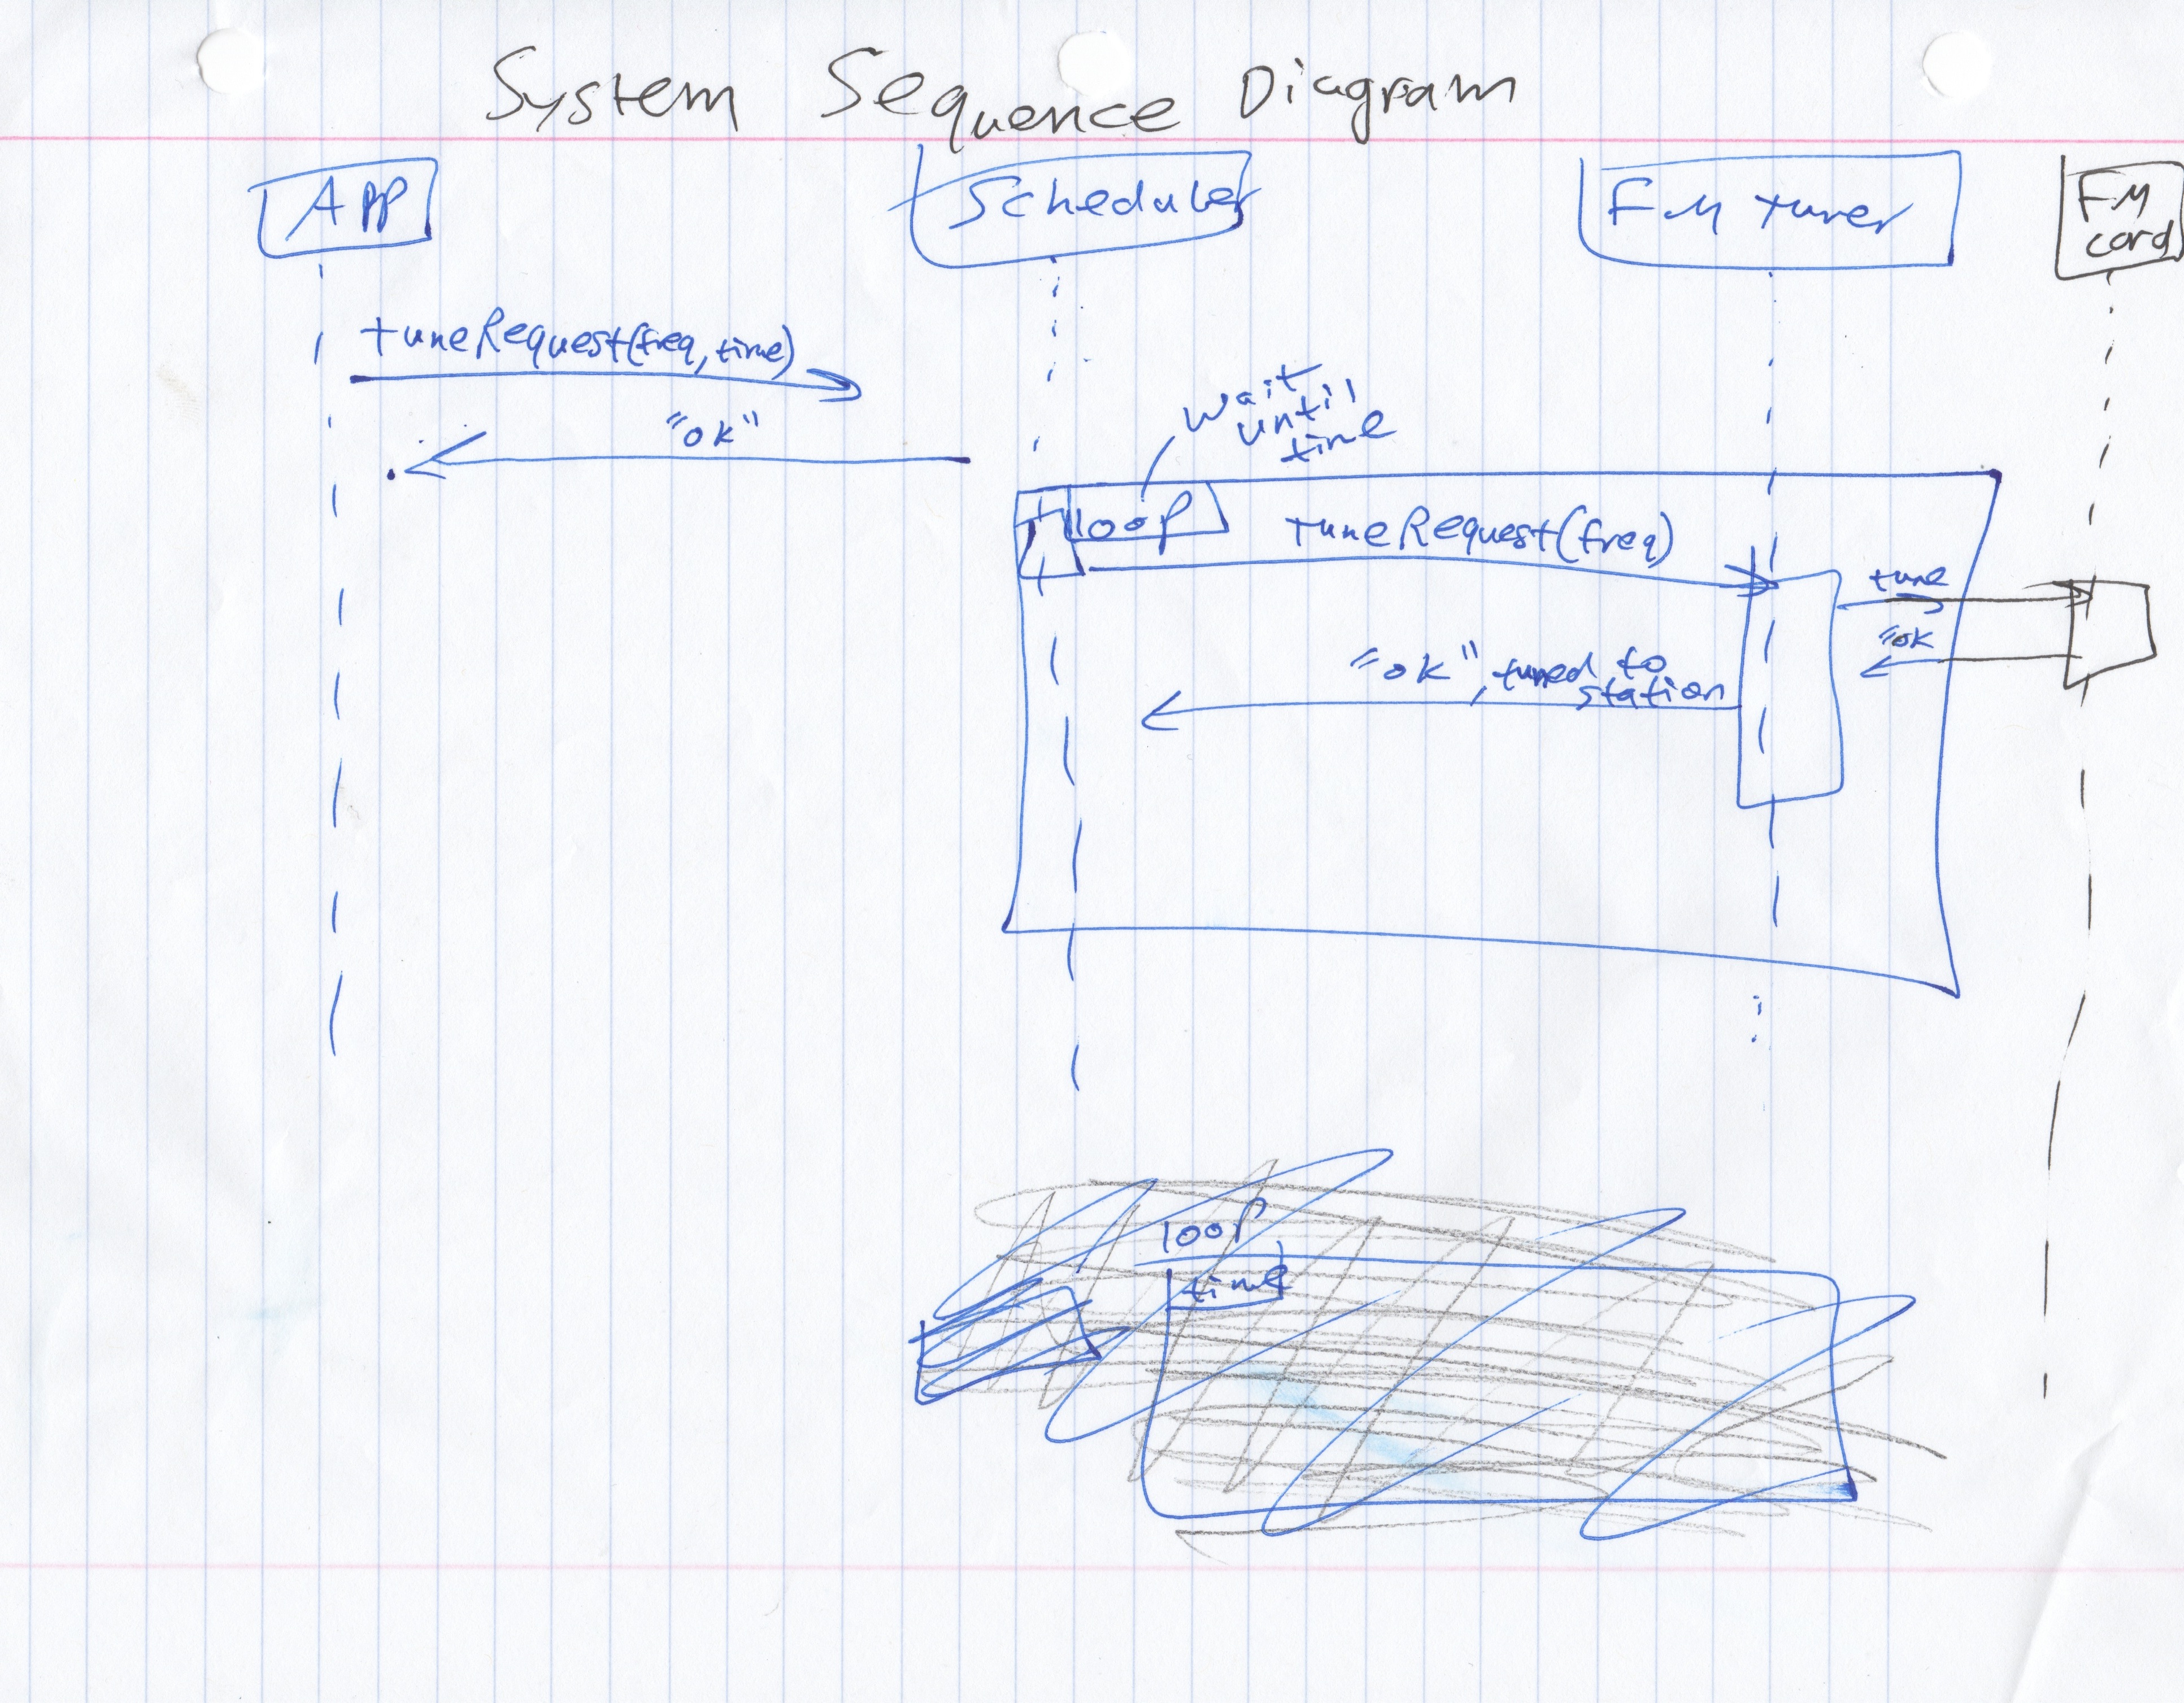 System Sequence Diagram
App
Scheduler
FM tuner
FM
card
tuneRequest(freq, time)
"ok"
wait
until
time
loop
tuneRequest(freq)
tune
"ok
"ok", tuned to
station
loop
time